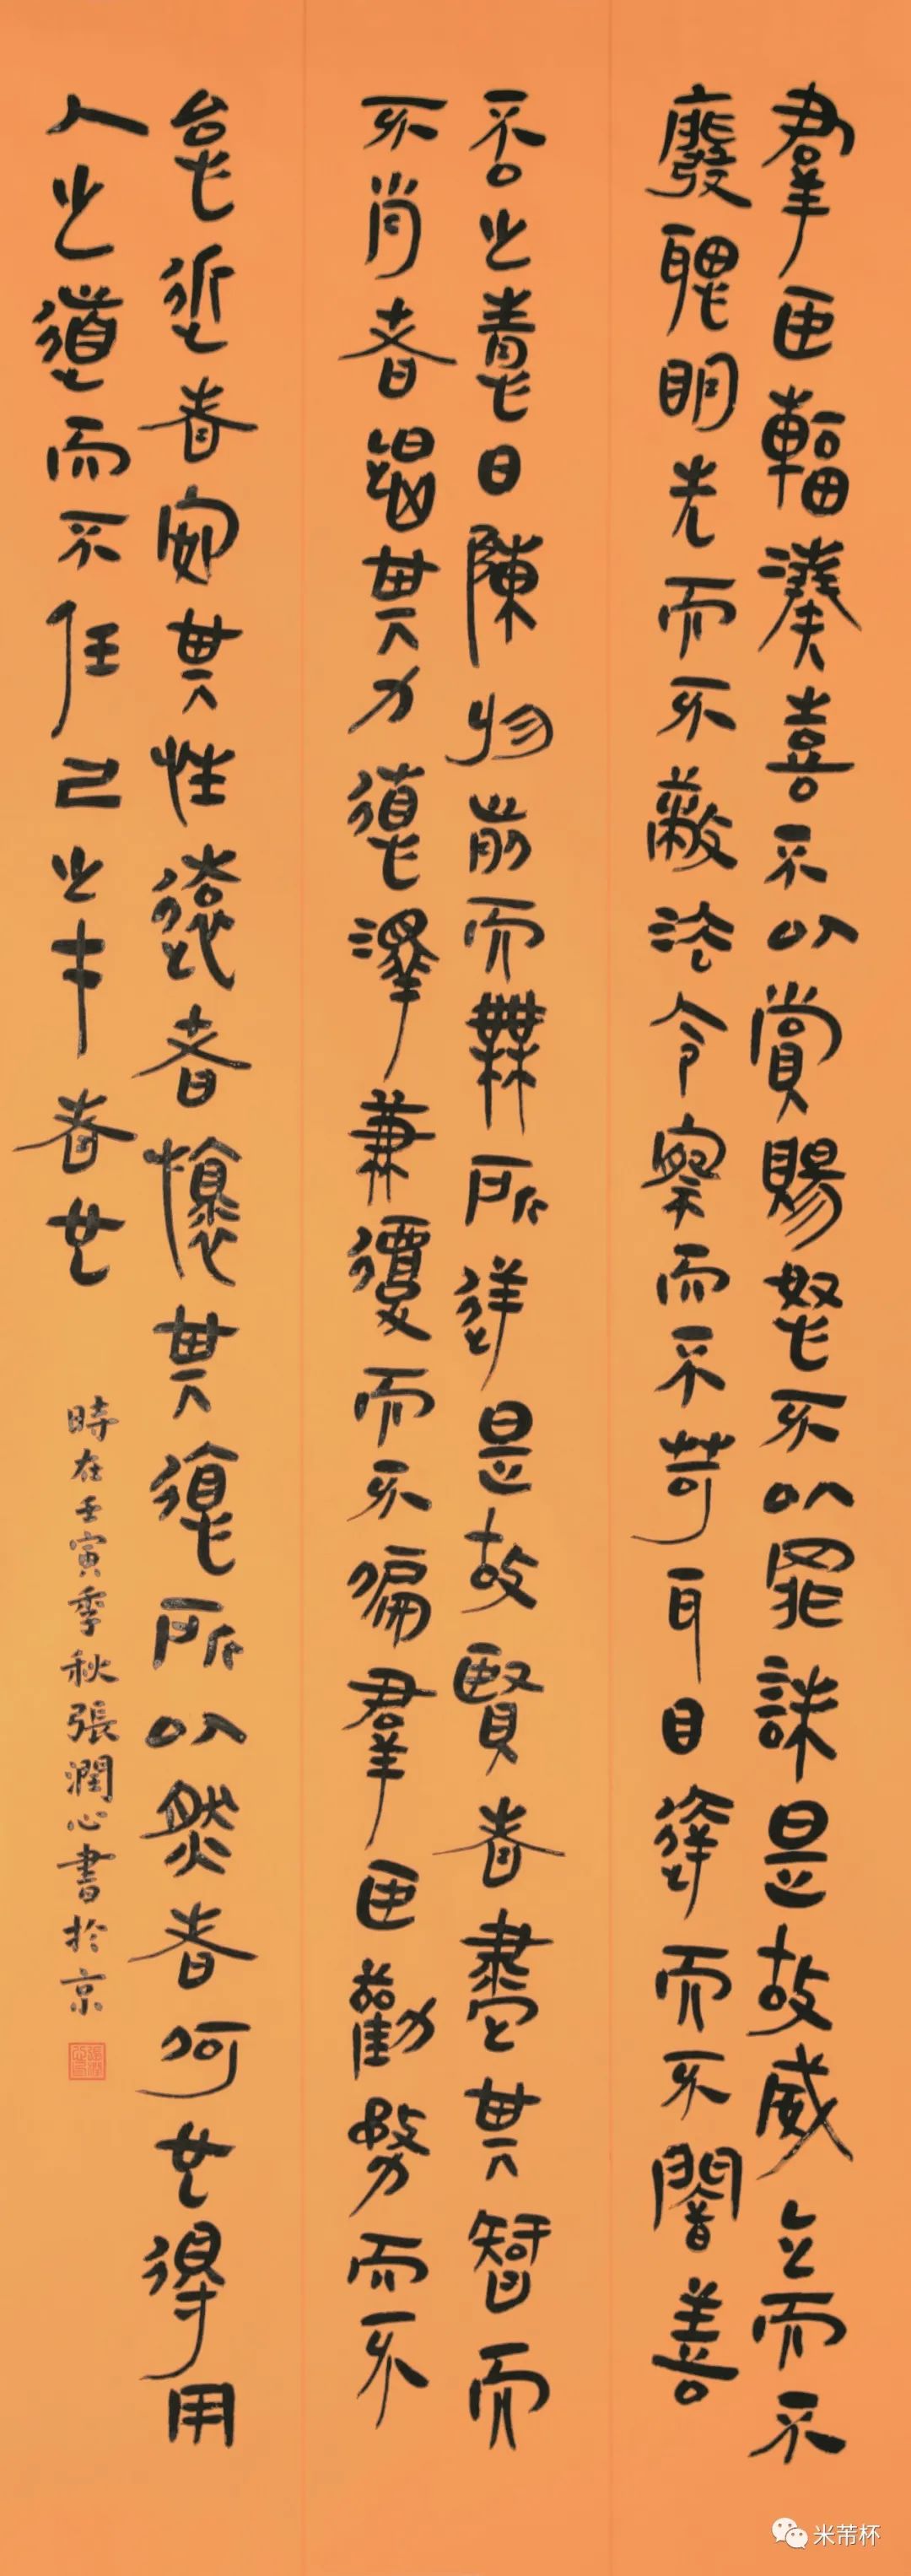 羣臣輻湊喜不以賞賜怒不以罪誅是故威立而不
廢聰明先而不蔽法令察而不苛耳目達而不闇善
否之情日陳於前而無所逆是故賢者盡其智而
不肖者竭其力德澤兼覆而不偏羣臣勸務而不
怠近者安其性遠者懷其德所以然者何也得用
人之道而不任己之才者也
時在壬寅季秋張潤心書於京
米芾杯